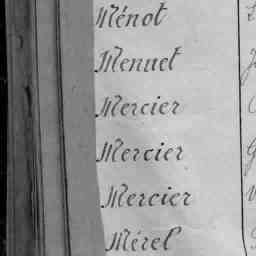 Ménot
Menuet
Mercier
Mercier
Mercier
Mérel